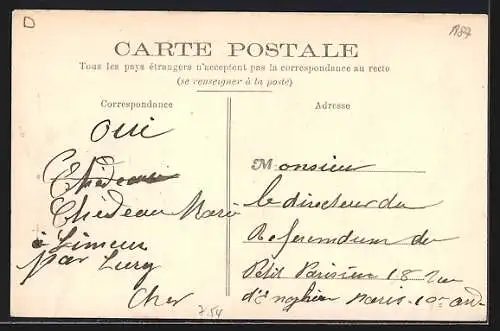 D
CARTE POSTALE
Tous les pays étrangers n'acceptent pas la correspondance au recto
(se renseigner à la poste)
Correspondance
oui
Chédeau Marie
à Limeux
par Lury
Cher
7.54
Adresse
Monsieur
le directeur du
Referendum du
Petit Parisien 18 Rue
d'Enghien Paris - 10e